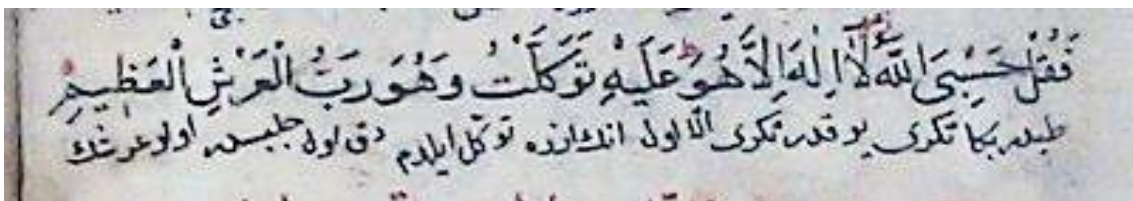 فَقُلْ حَسْبِيَ اللّٰهُ لَآ اِلٰهَ اِلَّا هُوَ عَلَيْهِ تَوَكَّلْتُ وَهُوَ رَبُّ الْعَرْشِ الْعَظٖيمِ
بكا تكرى يوقدر تكرى الا اول انك اوزره توكل ايلدم دخى اول جلبسدر اولو عرشك